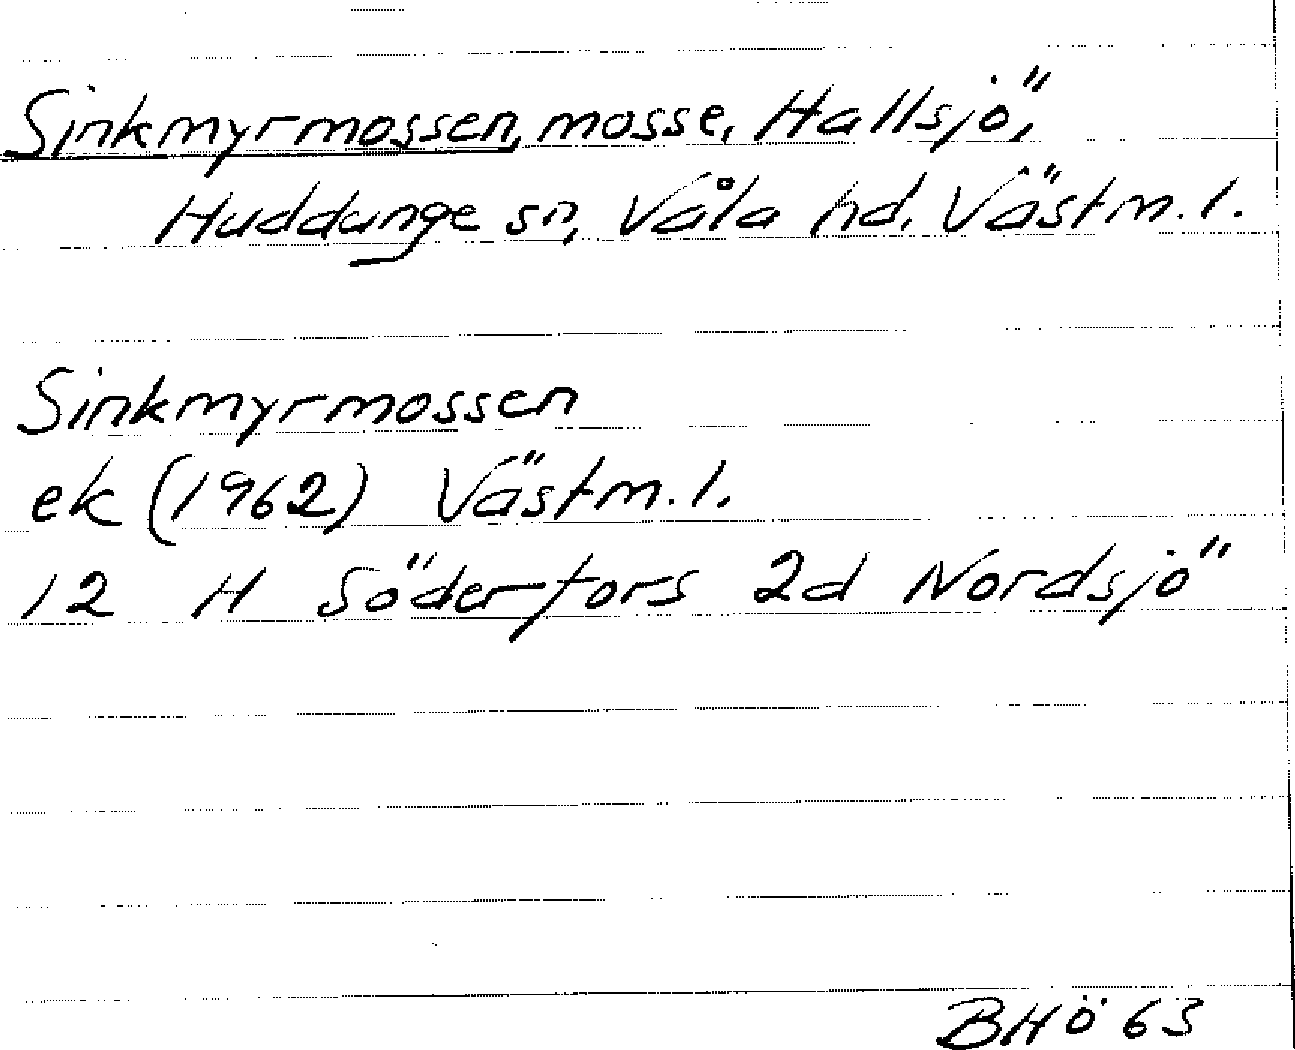 Sinkmyrmossen, mosse, Hallsjö,
Huddunge sn, Våla hd. Västm.l.
Sinkmyrmossen
ek (1962) Västm.l.
12 H Söderfors 2d Nordsjö
BHÖ 63